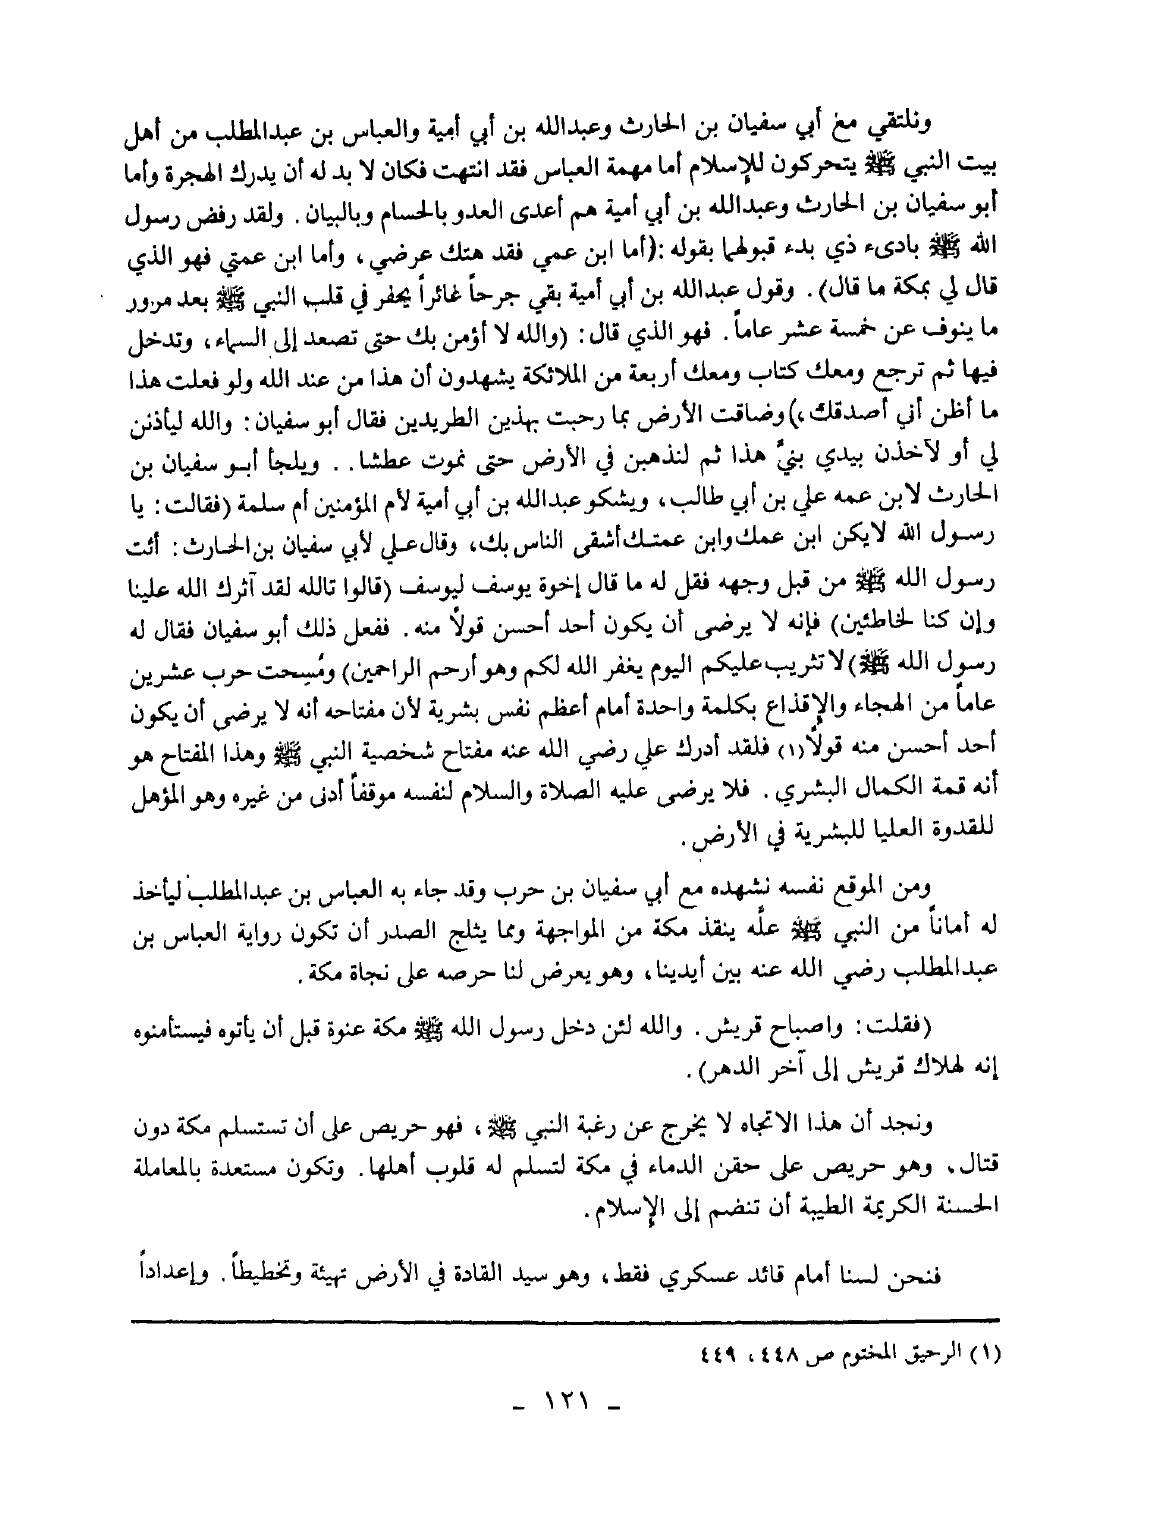 ونلتقي مع أبي سفيان بن الحارث وعبدالله بن أبي أمية والعباس بن عبدالمطلب من أهل
بيت النبي ﷺ يتحركون للإسلام أما مهمة العباس فقد انتهت فكان لا بد له أن يدرك الهجرة وأما
أبو سفيان بن الحارث وعبدالله بن أبي أمية هم أعدى العدو بالحسام وبالبيان. ولقد رفض رسول
الله ﷺ بادىء ذي بدء قبولهما بقوله :(أما ابن عمي فقد هتك عرضي، وأما ابن عمتي فهو الذي
قال لي بمكة ما قال). وقول عبدالله بن أبي أمية بقي جرحاً غائراً يحفر في قلب النبي ﷺ بعد مرور
ما ينوف عن خمسة عشر عاماً. فهو الذي قال: (والله لا أؤمن بك حتى تصعد إلى السماء، وتدخل
فيها ثم ترجع ومعك كتاب ومعك أربعة من الملائكة يشهدون أن هذا من عند الله ولو فعلت هذا
ما أظن أني أصدقك،)وضاقت الأرض بما رحبت بهذين الطريدين فقال أبو سفيان: والله ليأذنن
لي أو لآخذن بيدي بنيَّ هذا ثم لنذهبن في الأرض حتى نموت عطشا. . ويلجأ أبو سفيان بن
الحارث لابن عمه علي بن أبي طالب، ويشكو عبدالله بن أبي أمية لأم المؤمنين أم سلمة (فقالت: يا
رسول الله لايكن ابن عمك وابن عمتك أشقى الناس بك، وقال علي لأبي سفيان بن الحارث: أئت
رسول الله ﷺ من قبل وجهه فقل له ما قال إخوة يوسف ليوسف (قالوا تالله لقد آثرك الله علينا
وإن كنا لخاطئين) فإنه لا يرضى أن يكون أحد أحسن قولاً منه. ففعل ذلك أبو سفيان فقال له
رسول الله ﷺ)لا تثريب عليكم اليوم يغفر الله لكم وهو أرحم الراحمين) ومُسِحت حرب عشرين
عاماً من الهجاء والإقذاع بكلمة واحدة أمام أعظم نفس بشرية لأن مفتاحه أنه لا يرضى أن يكون
أحد أحسن منه قولاً(١) فلقد أدرك علي رضي الله عنه مفتاح شخصية النبي ﷺ وهذا المفتاح هو
أنه قمة الكمال البشري. فلا يرضى عليه الصلاة والسلام لنفسه موقفاً أدنى من غيره وهو المؤهل
للقدوة العليا للبشرية في الأرض.
ومن الموقع نفسه نشهده مع أبي سفيان بن حرب وقد جاء به العباس بن عبدالمطلب ليأخذ
له أماناً من النبي ﷺ علَّه ينقذ مكة من المواجهة ومما يثلج الصدر أن تكون رواية العباس بن
عبدالمطلب رضي الله عنه بين أيدينا، وهو يعرض لنا حرصه على نجاة مكة.
(فقلت: واصباح قريش. والله لئن دخل رسول الله ﷺ مكة عنوة قبل أن يأتوه فيستأمنوه
إنه لهلاك قريش إلى آخر الدهر).
ونجد أن هذا الاتجاه لا يخرج عن رغبة النبي ﷺ، فهو حريص على أن تستسلم مكة دون
قتال، وهو حريص على حقن الدماء في مكة لتسلم له قلوب أهلها. وتكون مستعدة بالمعاملة
الحسنة الكريمة الطيبة أن تنضم إلى الإسلام.
فنحن لسنا أمام قائد عسكري فقط، وهو سيد القادة في الأرض تهيئة وتخطيطاً. وإعداداً
(١) الرحيق المختوم ص ٤٤٨، ٤٤٩
- ١٢١ -